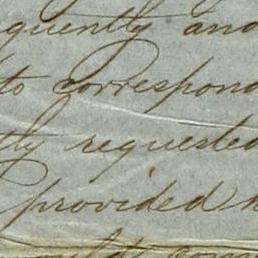 quently and
to correspond
tly requested
provided